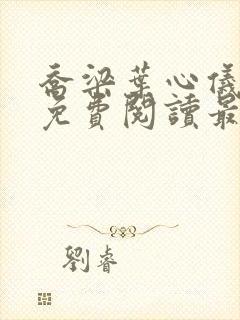 喬梁葉心儀
免費閱讀最
劉睿